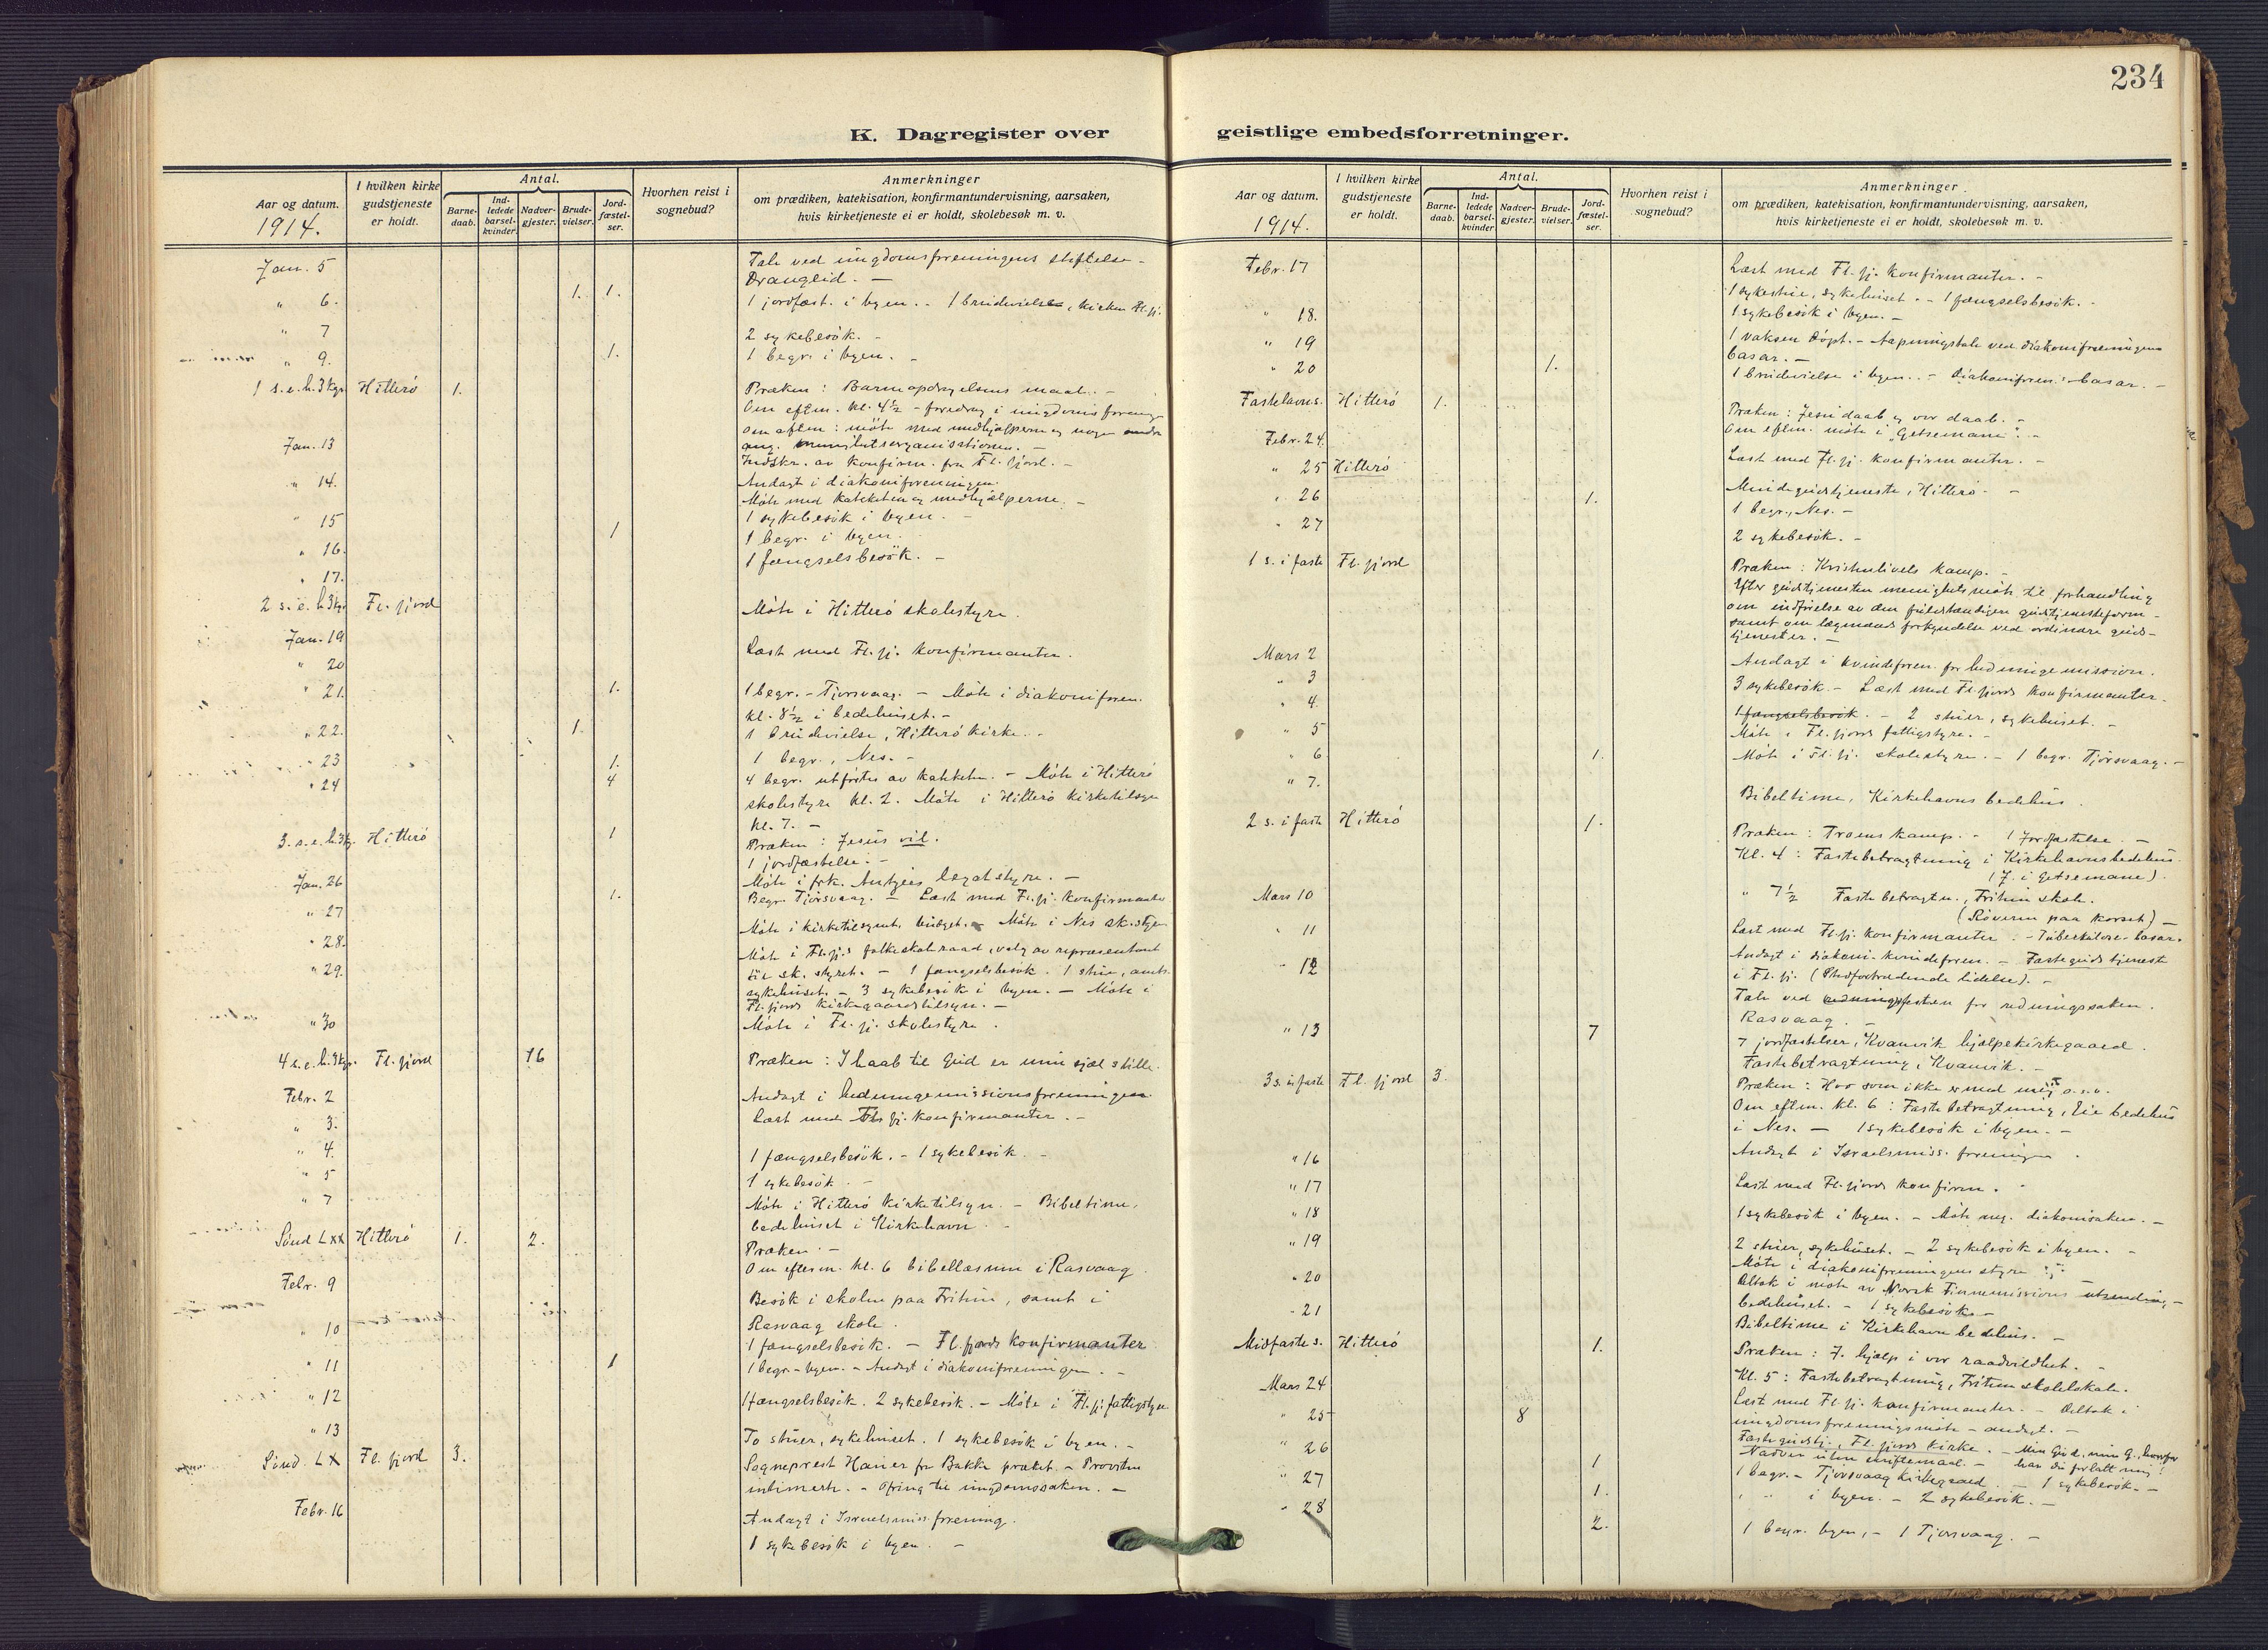 234
K. Dagregister over geistlige embedsforretninger.
Aar og datum.
1914.
I hvilken kirke gudstjeneste er holdt.
Antal.
Barne-daab.
Ind-ledede barsel-kvinder.
Nadver-gjester.
Brude-vielser.
Jord-fæstel-ser.
Hvorhen reist i sognebud?
Anmerkninger
om prædiken, katekisation, konfirmantundervisning, aarsaken,
hvis kirketjeneste ei er holdt, skolebesøk m. v.
Jan. 5 Tale ved ungdomsforeningens stiftelse -
Drangeid. -
" 6. 1. 1. 1 jordfæst. i byen. - 1 brudevielse, kirken Fl.fj.
" 7 2 sykebesök. -
" 9. 1. 1 begr. i byen. -
1 s.e.h.3kgr. Hitterö 1. Præken: Barneopdragelsens maal. -
Om efterm. kl. 4½ - foredrag i ungdomsforening
Om eftm: möte med medhjælperne og nogen andre
ang. menighetsorganisationen. -
Jan. 13 Indskr. av konfirm. fra Fl. fjord. -
" 14. Andagt i diakoniforeningen.
Möte med kateketen og medhjælperne. -
" 15 1 1 sykebesök i byen. -
" 16. 1 begr. i byen.
" 17. 1 fængselsbesök. -
2 s.e.h.3kg. Fl. fjord Möte i Hitterö skolestyre.
Jan. 19
" 20 Læst med Fl. fj. konfirmanter.
" 21. 1. 1 begr. - Tjorsvaag. - Möte i diakoniforen.
kl. 8½ i bedehuset. -
" 22. 1. 1 brudevielse, Hitterö kirke. -
" 23 1. 1 begr., Nes. -
" 24 4 4 begr. utförtes av kateketen. - Möte i Hitterö
skolestyre kl. 2. Möte i Hitterö kirketilsyn
kl. 7. -
3. s.e.h.3kg. Hitterö 1 Præken: Jesus vil.
1 jordfæstelse. -
Jan. 26 Möte i frk. legatstyre. -
" 27 1. Begr. Tjorsvaag. - Læst med Fl. fj. konfirmanter
" 28. Möte i kirketilsynet, budget. - Möte i Nes sk.styre
" 29. Möte i Fl.fj.s folkeskoleraad, valg av repræsentant
til sk. styret. - 1 fængselsbesök. 1 stue, amts-
sykehuset. - 3 sykebesök i byen. - Möte i
Fl.fjords kirkegaardstilsyn. -
" 30 Möte i Fl. fj. skolestyre.
4 s.e.h.3kgr. Fl. fjord 16 Præken: I haab til Gud er min sjæl stille.
Febr. 2 Andagt i hedningemissionsforeningen.
" 3. Læst med Fl. fj. konfirmanter. -
" 4. 1 fængselsbesök. - 1 sykebesök. -
" 5 1 sykebesök. -
" 7 Möte i Hitterö kirketilsyn. - Bibeltime,
bedehuset i Kirkehavn. -
Sönd LXX Hitterö 1. 2. Præken. -
Om efterm. kl. 6 bibellæsning i Rasvaag
Febr. 9 Besök i skolen paa Fitum, samt i
Rasvaag skole.
" 10 1 fængselsbesök. - Fl. fjords konfirmanter
" 11 1 1 begr. - byen. - Andagt i diakoniforeningen. -
" 12 1 fængselsbesök. 2 sykebesök. - Möte i Fl.fj. fattigstyre
" 13 To stuer, sykehuset. 1 sykebesök i byen. -
Sönd. LX Fl. fjord 3. Sogneprest Hauer fra Bakke præket. - Provsten
intimerte. - Ofring til ungdomssaken. -
Febr. 16 Andagt i Israelsmiss. forening.
1 sykebesök i byen. -
Aar og datum.
1914.
I hvilken kirke gudstjeneste er holdt.
Antal.
Barne-daab.
Ind-ledede barsel-kvinder
Nadver-gjester.
Brude-vielser.
Jord-fæstel-ser.
Hvorhen reist i sognebud?
Anmerkninger
om prædiken, katekisation, konfirmantundervisning, aarsaken,
hvis kirketjeneste ei er holdt, skolebesøk m. v.
Febr. 17 Læst med Fl. fj. konfirmanter. -
1 sykestue, sykehuset. - 1 fængselsbesök. -
" 18. 1 sykebesök i byen. -
" 19 1 voksen döpt. - Aapningstale ved diakoniforeningens
basar. -
" 20 1. 1 brudevielse i byen. - Diakoniforen. basar. -
Fastelavns. Hitterö 1. Præken: Jesu daab og vor daab. -
Om eftm. möte i "Getsemane". -
Febr. 24. Læst med Fl. fj. konfirmanter. -
" 25 Hitterö Mindegudstjeneste, Hitterö. -
" 26 1. 1 begr., Nes. -
" 27 2 sykebesök. -
1 s. i faste Fl. fjord Præken: Kristenlivets kamp. -
Efter gudstjenesten menighetsmöte til forhandling
om indförelse av den fuldstændigere gudstjenesteform -
samt om lægmands forkyndelse ved ordinære guds-
tjenester. -
Mars 2 Andagt i kvindeforen. for hedningemission.
" 3 3 sykebesök. - Læst med Fl.fjords konfirmanter.
" 4. 1 fængselsbesök. - 2 stuer, sykehuset. -
" 5 Möte i Fl. fjords fattigstyre. -
" 6 1. Möte i Fl. fj. skolestyre. - 1 begr. Tjorsvaag. -
" 7. Bibeltime, Kirkehavns bedehus.
2 s. i faste Hitterö 1. Præken: Troens kamp. - 1 Jordfæstelse -
Kl. 4: Fastebetragtning i Kirkehavns bedehus.
(J. i Getsemane).
" 7½ Fastebetragtn., Fitum skole.
(Röveren paa korset) -
Mars 10 Læst med Fl. fj. konfirmanter. - Tuberkulose-basar.
" 11 Andagt i diakoni-kvindeforen. - Fastegudstjeneste
i Fl. fj. (Stedfortrædende lidelse). -
" 12 Tale ved festen for redningssaken.
Rasvaag. -
" 13 7 7 jordfæstelser, Kvanvik hjælpekirkegaard.
Fastebetragtning, Kvanvik. -
3 s. i faste Fl. fjord 3. Præken: Hvo som ikke er med mig o.s.v.
Om eftm. kl. 6: Fastebetragtning, bedehus
i Nes. - 1 sykebesök i byen. -
" 16 Andagt i Israelsmiss. foreningen.
" 17 Læst med Fl. fjords konfirm. -
" 18 1 sykebesök i byen. - Möte ang. diakonisaken. -
" 19 2 stuer, sykehuset. - 2 sykebesök i byen. -
" 20 Möte i diakoniforeningens styre
Deltok i möte av Norsk Finnemissions utsending -
bedehuset. - 1 sykebesök. -
" 21 Bibeltime i Kirkehavn bedehus. -
Midfaste s. Hitterö 1. Præken: J. hjælp i vor raadvildhet. -
Kl. 5: Fastebetragtning, Fitum skolelokale.
Mars 24 Læst med Fl. fj. konfirmanter. - Deltok i
ungdomsforeningsmöte - andagt. -
" 25 8 Fastegudstj., Fl. fjords kirke. - Min Gud, min G., hvorfor
har du forlatt mig!
Nadver uten skriftemaal. -
" 26 1 1 begr. - Tjorsvaag kirkegaard. - 1 sykebesök. -
" 27 1. " " i byen. - 2 sykebesök. -
" 28 2. 1 begr. byen, - 1 Tjorsvaag. -